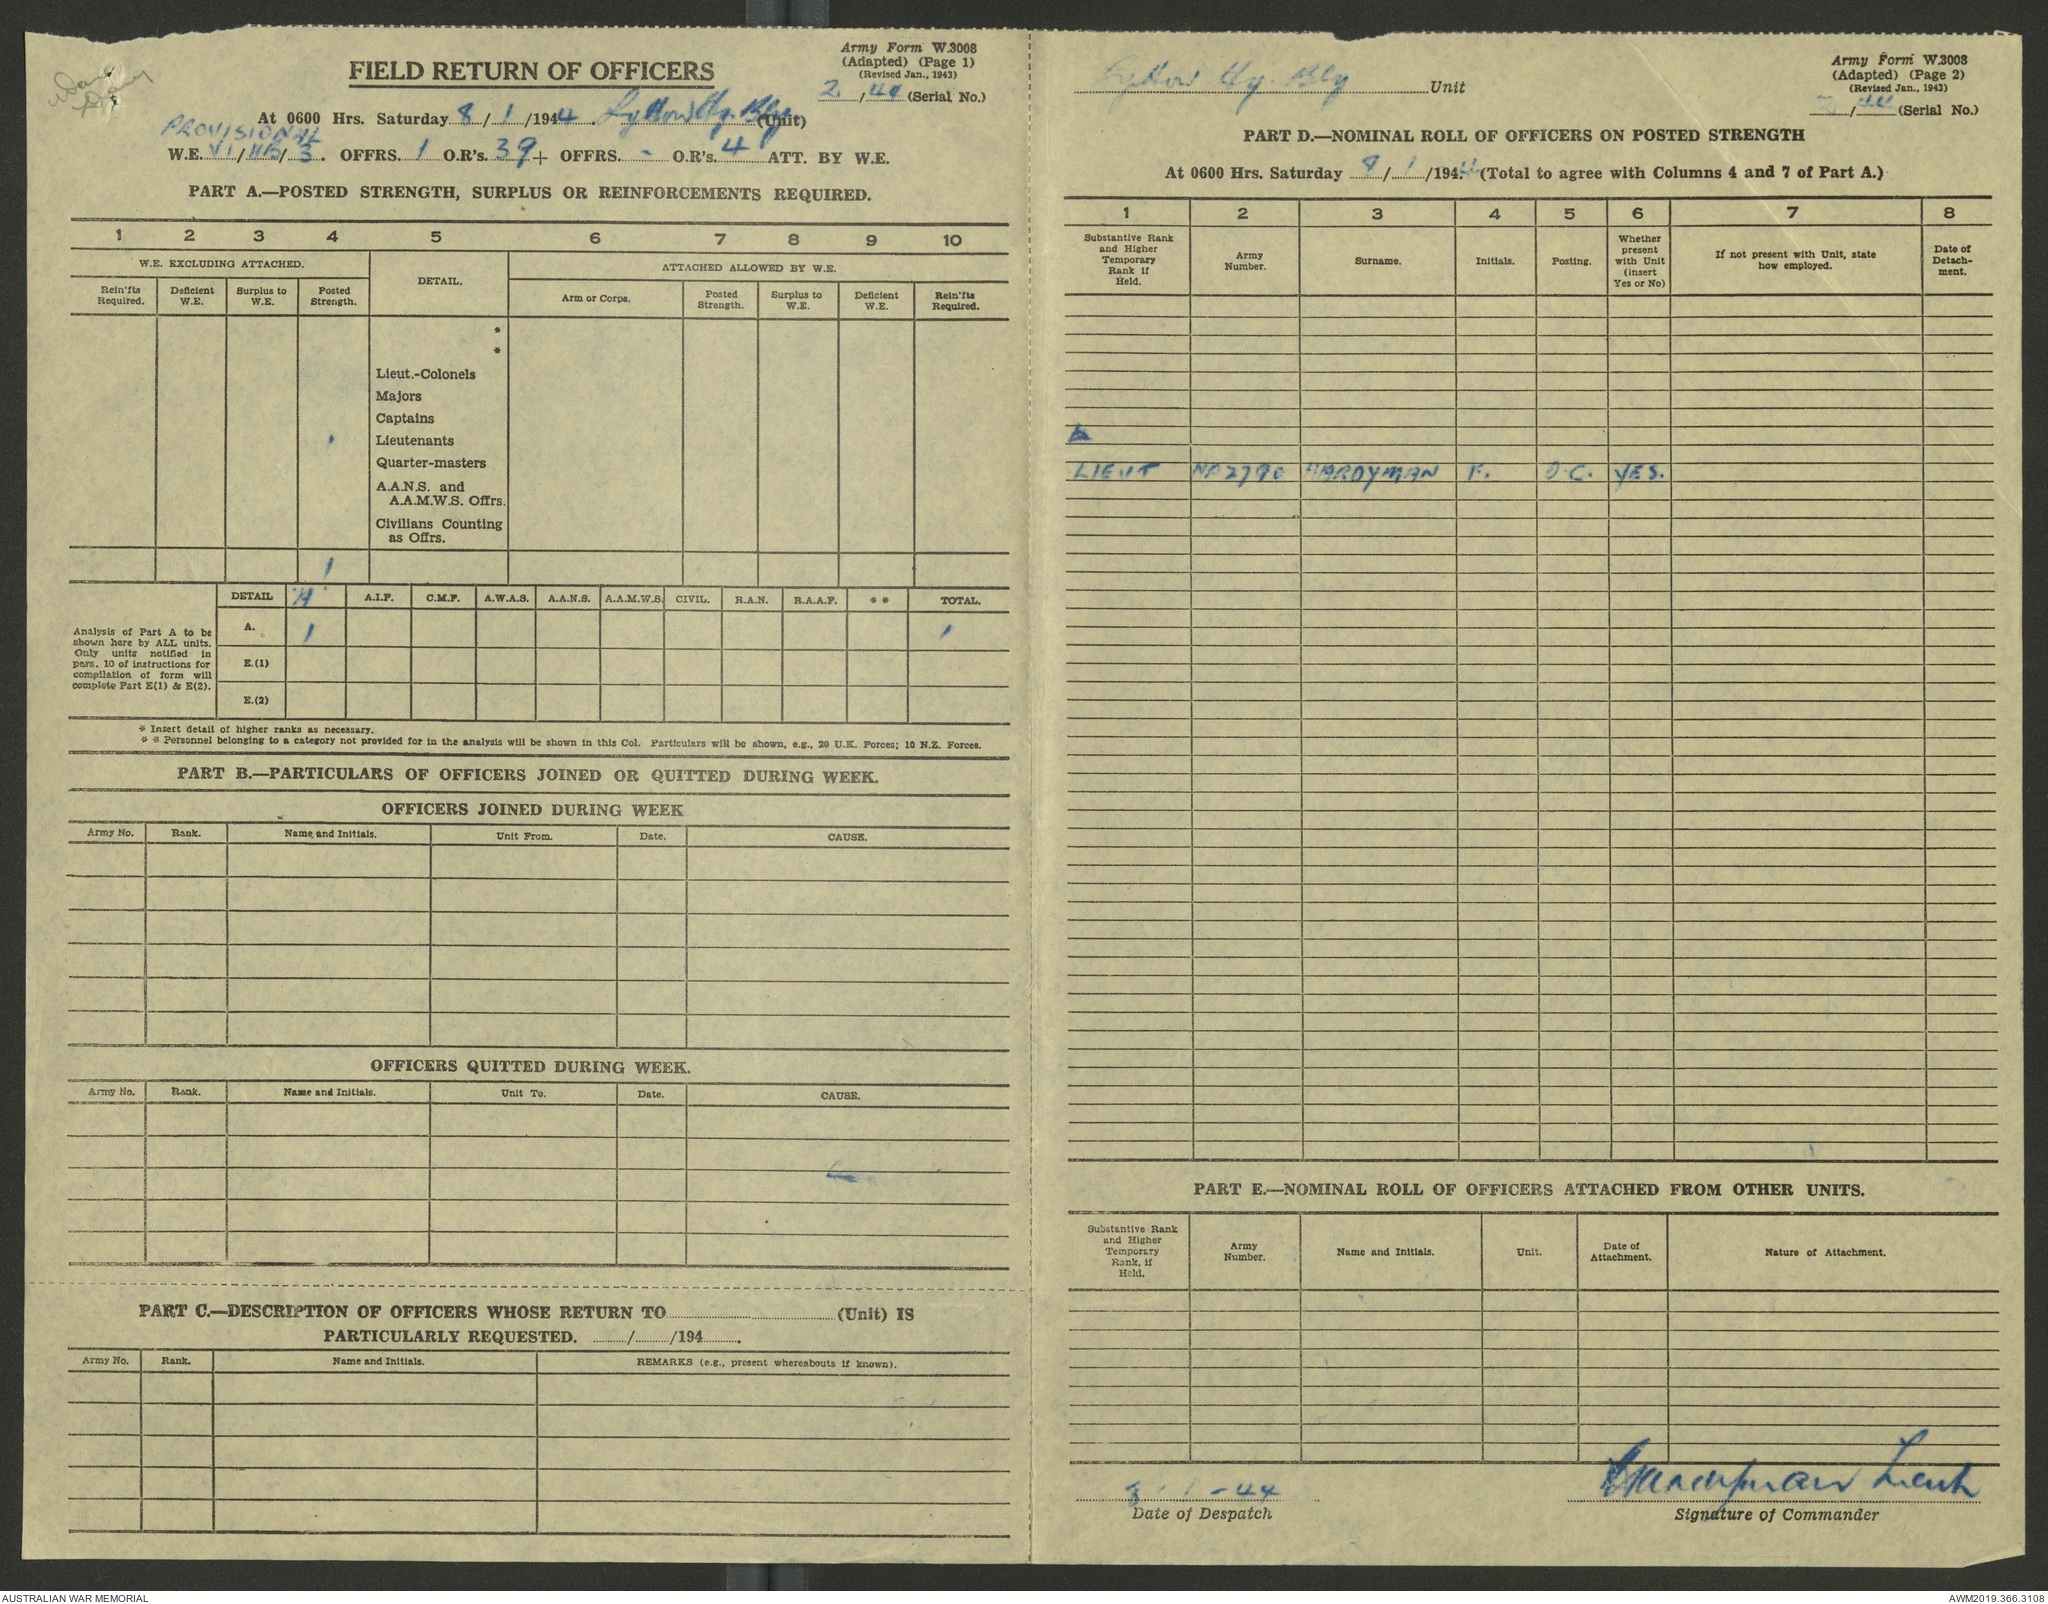 Army Form W.3008
(Adapted) (Page 1)
(Revised Jan., 1943)
2 / 44 (Serial No.)
FIELD RETURN OF OFFICERS
At 0600 Hrs. Saturday 8 / 1 / 1944. Lytton Hy. Bty (Unit)
PROVISIONAL
W.E. VI / 116 / 3. OFFRS. 1 O.R's. 39 + OFFRS. - O.R's. 4 ATT. BY W.E.
PART A.—POSTED STRENGTH, SURPLUS OR REINFORCEMENTS REQUIRED.
1 2 3 4 5 6 7 8 9 10
W.E. EXCLUDING ATTACHED. DETAIL. ATTACHED ALLOWED BY W.E.
Rein'fts Required. Deficient W.E. Surplus to W.E. Posted Strength. Arm or Corps. Posted Strength. Surplus to W.E. Deficient W.E. Rein'fts Required.
*
*
Lieut.-Colonels
Majors
Captains
1 Lieutenants
Quarter-masters
A.A.N.S. and
A.A.M.W.S. Offrs.
Civilians Counting
as Offrs.
1
DETAIL "A" A.I.F. C.M.F. A.W.A.S. A.A.N.S. A.A.M.W.S. CIVIL. R.A.N. R.A.A.F. * * TOTAL.
Analysis of Part A to be
shown here by ALL units.
Only units notified in
para. 10 of instructions for
compilation of form will
complete Part E(1) & E(2).
A. 1 1
E.(1)
E.(2)
* Insert detail of higher ranks as necessary.
* * Personnel belonging to a category not provided for in the analysis will be shown in this Col. Particulars will be shown, e.g., 20 U.K. Forces; 10 N.Z. Forces.
PART B.—PARTICULARS OF OFFICERS JOINED OR QUITTED DURING WEEK.
OFFICERS JOINED DURING WEEK
Army No. Rank. Name and Initials. Unit From. Date. CAUSE.
OFFICERS QUITTED DURING WEEK.
Army No. Rank. Name and Initials. Unit To. Date. CAUSE.
PART C.—DESCRIPTION OF OFFICERS WHOSE RETURN TO (Unit) IS
PARTICULARLY REQUESTED. / /194 .
Army No. Rank. Name and Initials. REMARKS (e.g., present whereabouts if known).
Army Form W.3008
(Adapted) (Page 2)
(Revised Jan., 1943)
2 / 44 (Serial No.)
Lytton Hy. Bty Unit
PART D.—NOMINAL ROLL OF OFFICERS ON POSTED STRENGTH
At 0600 Hrs. Saturday 8 / 1 /1944 (Total to agree with Columns 4 and 7 of Part A.)
1 2 3 4 5 6 7 8
Substantive Rank and Higher Temporary Rank if Held. Army Number. Surname. Initials. Posting. Whether present with Unit (insert Yes or No) If not present with Unit, state how employed. Date of Detach-ment.
LIEUT HARDYMAN F. O.C. YES.
PART E.—NOMINAL ROLL OF OFFICERS ATTACHED FROM OTHER UNITS.
Substantive Rank and Higher Temporary Rank, if Held. Army Number. Name and Initials. Unit. Date of Attachment. Nature of Attachment.
8 - 1 - 44
Date of Despatch
Hardyman Lieut
Signature of Commander
AUSTRALIAN WAR MEMORIAL
AWM2019.366.3108